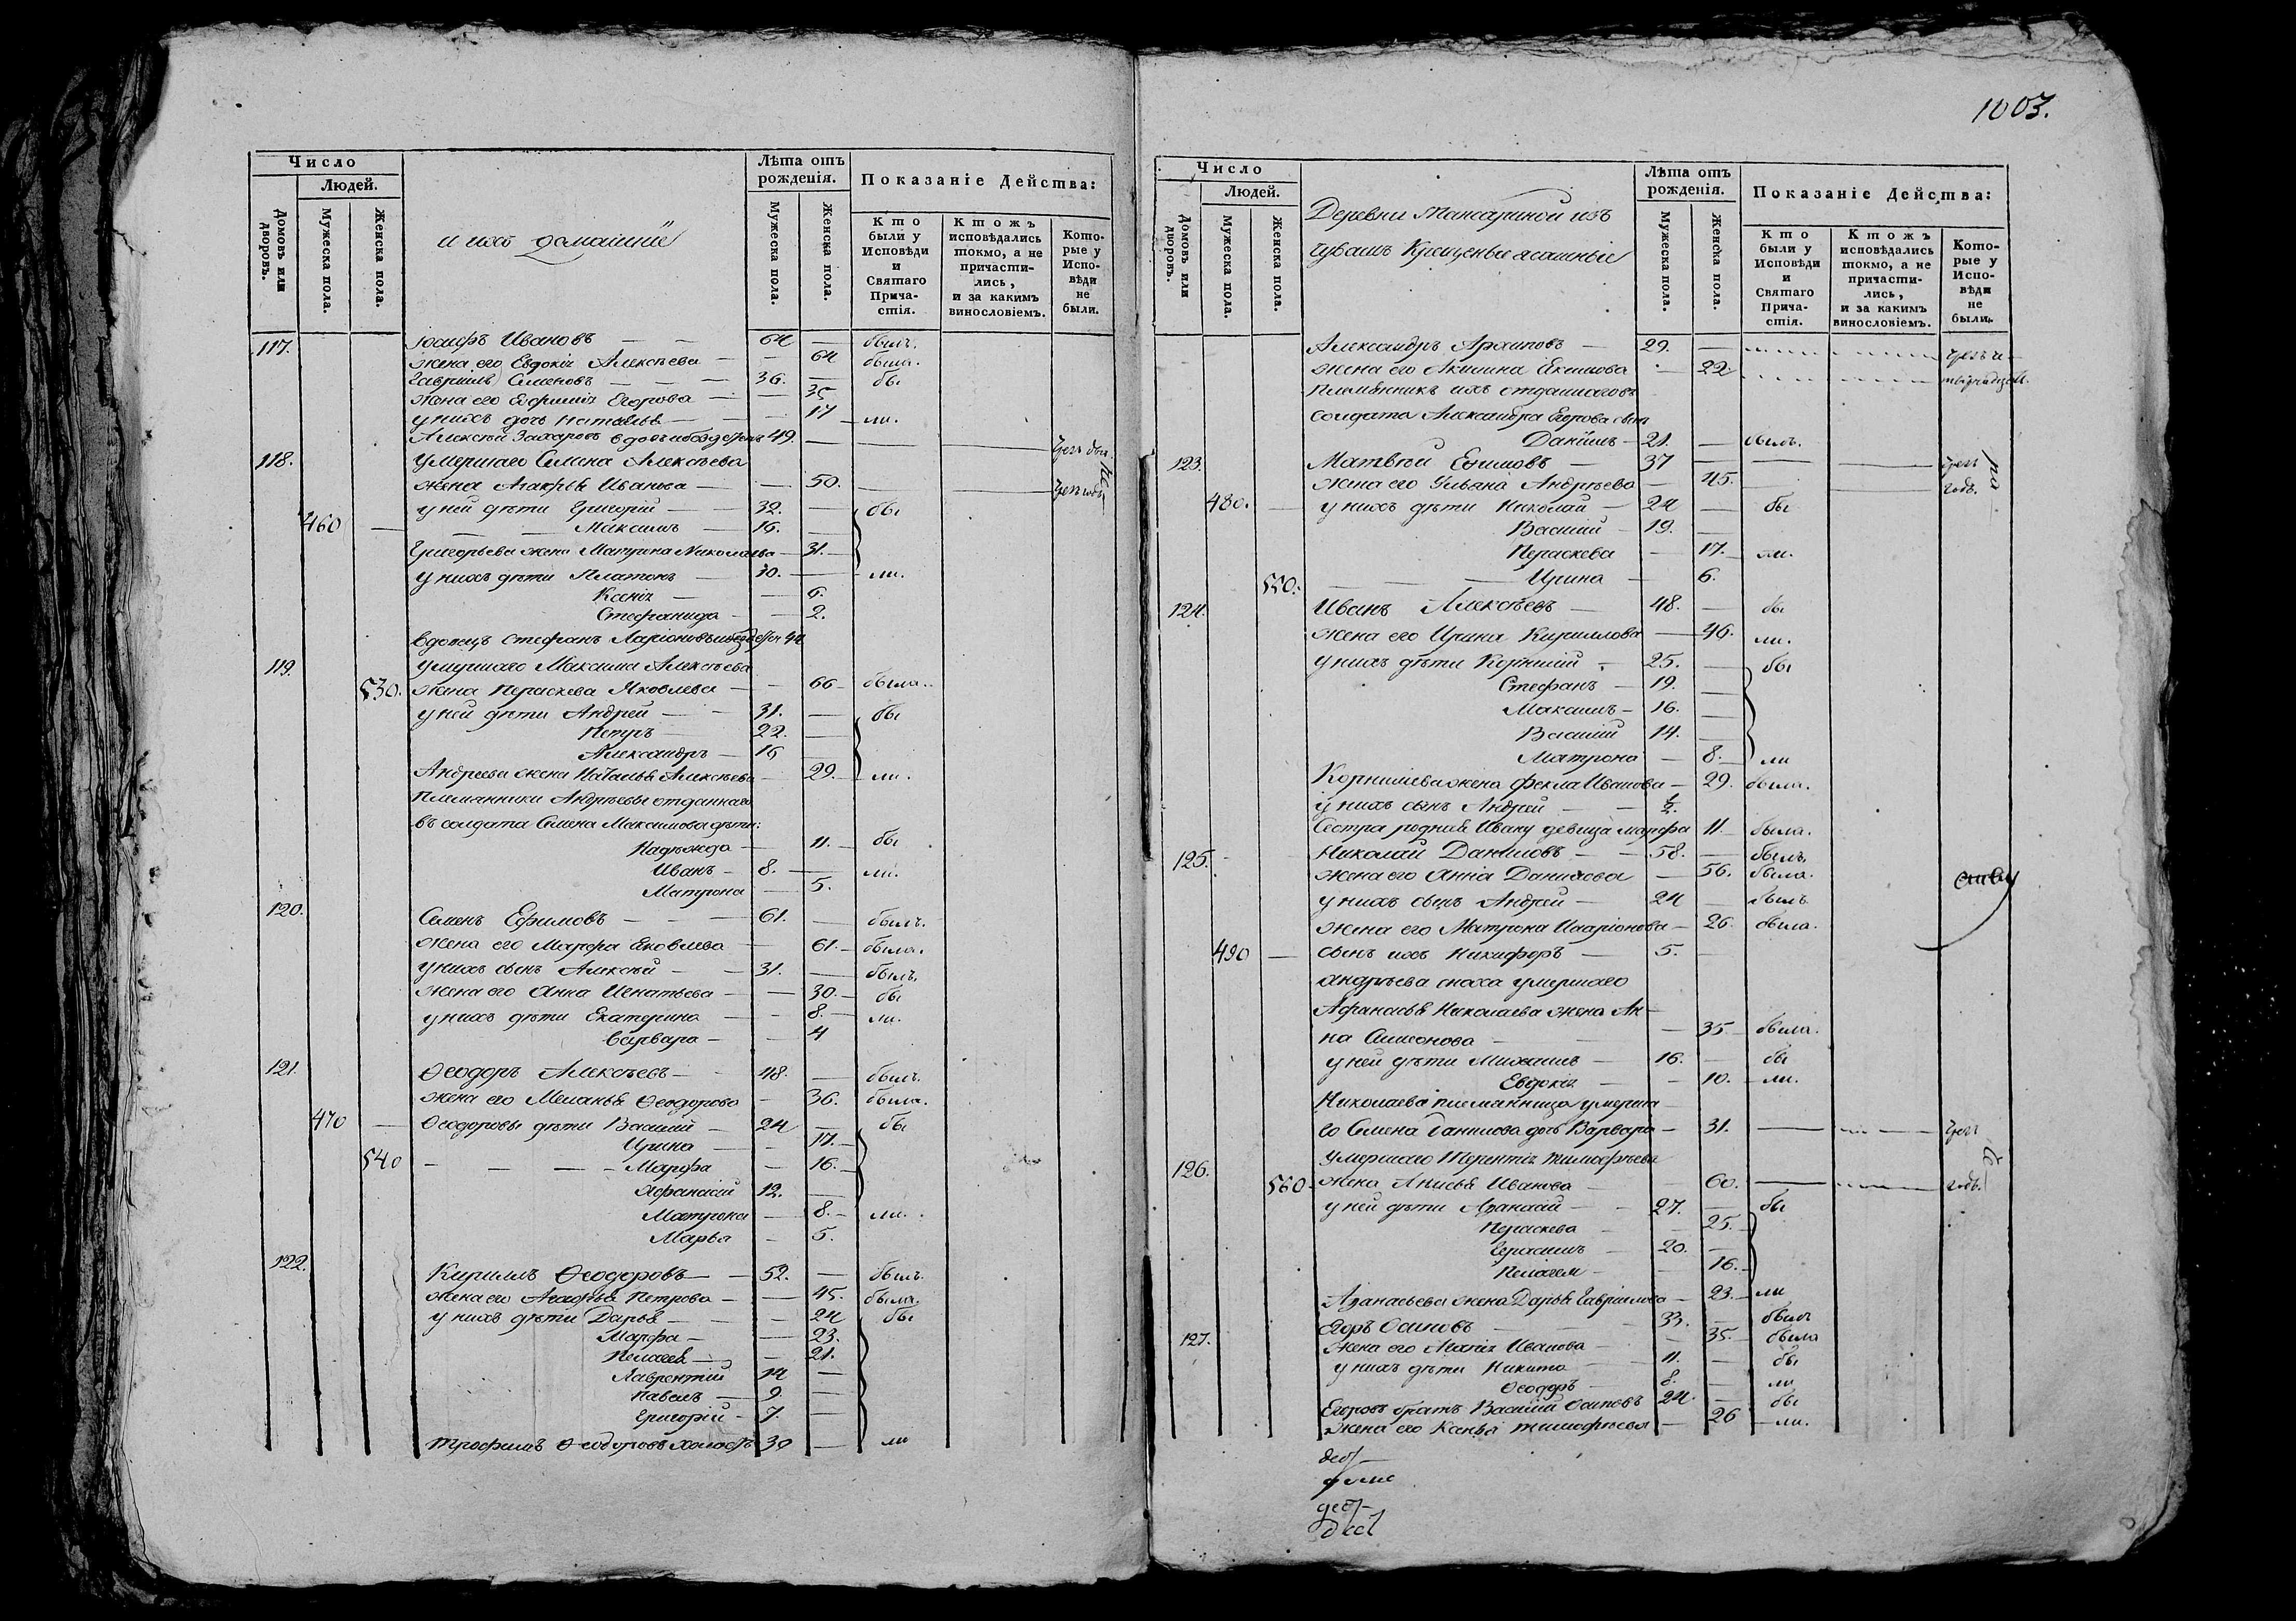 Число
Людей.
Домовъ или дворовъ.
Мужеска пола.
Женска пола.
и ихъ домашніе
Лѣта отъ рожденія.
Мужеска пола.
Женска пола.
Показаніе Дѣйства:
Кто были у Исповѣди и Святаго Причастія.
Ктожъ исповѣдались токмо, а не причастились, и за какимъ винословіемъ.
Которые у Исповѣди не были.
117. Іосифъ Ивановъ — — 64 — былъ.
жена его Евдокія Алексѣева — — 64 была.
Гавріилъ Семеновъ — — — 36. — бы
жена его Евфимія Егорова — — 35
у нихъ дочь Наталья — — 17 — ли.
Алексѣй Захаровъ вдовъ 49. —
118. Умершаго Семена Алексѣева
жена Агафья Иванова — — 50.
у ней дѣти Григорій — — 32. — бы
460 — Максимъ — 16. —
Григорьева жена Матрона Николаева — 31. —
у нихъ дѣти Платонъ — 10. — ли.
Ксенія — — 6.
Стефанида — — 2.
вдовецъ Стефанъ Ларіоновъ 44
119. умершаго Максима Алексѣева
530. жена Параскева Яковлева — — 66 — была.
у ней дѣти Андрей — — 31. — бы
Петръ — 22. —
Александръ — 16 —
Андреева жена Наталья Алексѣева — 29. — ли.
Племянники Андреевы отданнаго
въ солдата Семена Максимова дѣти:
Надежда — 11. — бы
Иванъ — 8. — ли.
Матрона — 5.
120. Семенъ Ефимовъ — — — 61. — былъ.
жена его Марфа Яковлева — 61. — была.
у нихъ сынъ Алексѣй — — 31. — былъ.
жена его Анна Игнатьева — — 30. — бы
у нихъ дѣти Екатерина — — 8. — ли.
Варвара — — 4
121. Ѳеодоръ Алексѣевъ — — 48. — былъ.
жена его Меланья Ѳеодорова — 36. была.
470 — Ѳеодоровы дѣти Василій — 24 — бы
Ирина — — 17. —
540 — — — — Марфа — 16. —
Афанасій 12. —
Матрона — 8. — ли.
Марья — 5.
122. Кириллъ Ѳеодоровъ — — 52. — былъ.
жена его Агафья Петрова — — 45. была
у нихъ дѣти Дарья — — — 24 бы
Марфа — — 23.
Пелагея — — 21.
Лаврентій 14 —
Павелъ — 9. —
Григорій — 7. —
Трофимъ Ѳеодоровъ холостъ 30 — ли
1003.
Число
Людей.
Домовъ или дворовъ.
Мужеска пола.
Женска пола.
Деревни Мансариной изъ
чувашъ крещеные ясашные
Лѣта отъ рожденія.
Мужеска пола.
Женска пола.
Показаніе Дѣйства:
Кто были у Исповѣди и Святаго Причастія.
Ктожъ исповѣдались токмо, а не причастились, и за какимъ винословіемъ.
Которые у Исповѣди не были.
Александръ Архиповъ — 29. —
жена его Акилина — 22.
племянникъ ихъ отданнаго въ
солдата Александра Егорова сынъ
Даніилъ — 21. — былъ.
123. Матвѣй Ефимовъ — 37 —
жена его Ульяна Андреева — 45.
480. — у нихъ дѣти Николай — 24 — бы
Василій — 19. —
Параскева — 17. — ли.
550. — — — Ирина — 6.
124. Иванъ Алексѣевъ — 48. — бы
жена его Ирина Кириллова — 46. ли.
у нихъ дѣти Корнилій — 25. — бы
Стефанъ — 19. —
Максимъ — 16. —
Василій 14. —
Матрона — 8. — ли
Корниліева жена Фекла Иванова — 29. была.
у нихъ сынъ Андрей — — ½.
Сестра родная Ивану девица Марфа 11. — была.
125. Николай Даниловъ — — 58. — былъ.
жена его Анна Данилова — 56. была.
у нихъ сынъ Андрей — 24 — былъ
жена его Матрона Иларіонова — 26. была.
490 — сынъ ихъ Никифоръ — 5. —
Андреева сноха умершаго
Афанасья Николаева жена Ан-
на Симонова — — 35 — была.
у ней дѣти Михаилъ — 16. — бы
Евдокія — — 10. — ли.
Николаева племянница умерша-
го Семена Данилова дочь Варвара — 31. —
126. умершаго Терентія Тимофѣева
560. жена Анисья Иванова — 60. —
у ней дѣти Афанасій — — 27. — бы
Параскева — — 25. —
Герасимъ — 20. —
Пелагея — — 16. —
Афанасьева жена Дарья Гавріилова — 23. — ли
127. Егоръ Осиповъ — — — 33. — былъ
жена его Иванова — — 35. — была
у нихъ дѣти Никита — — 11. — бы
Ѳеодоръ — 8. — ли
Егоровъ братъ Василій Осиповъ 24. — бы
жена его Ксенья Тимофѣева — 26 — ли.